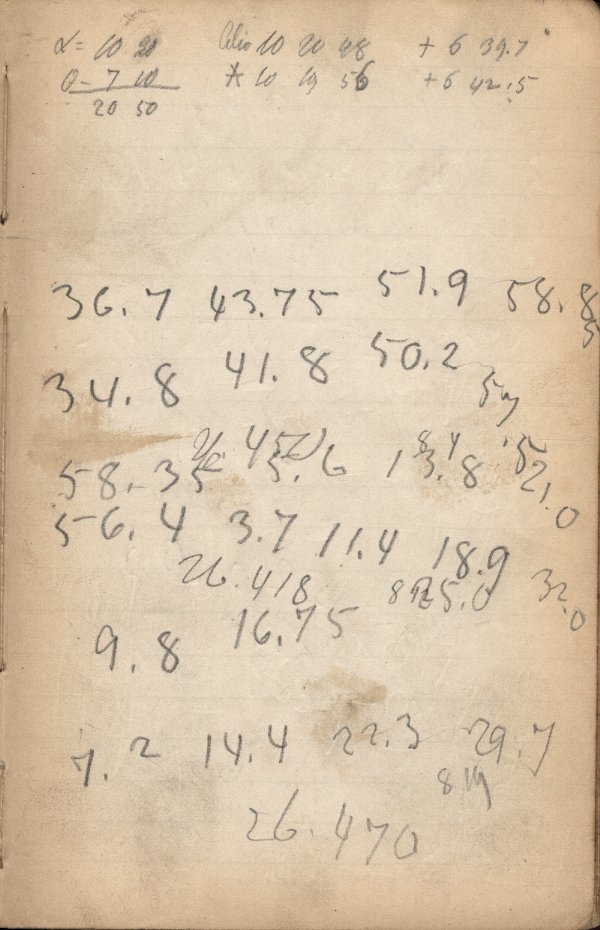 α = 10 20 10 20 48 + 6 39.7
θ - 7 10 * 10 19 56 + 6 42.5
20 50
36.7 43.75 51.9 58.85
34.8 41.8 50.2
58.35 5.6 13.8 21.0
56.4 3.7 11.4 18.9
26.418
9.8 16.75 25.0 32.0
7.2 14.4 22.3 29.7
26.470